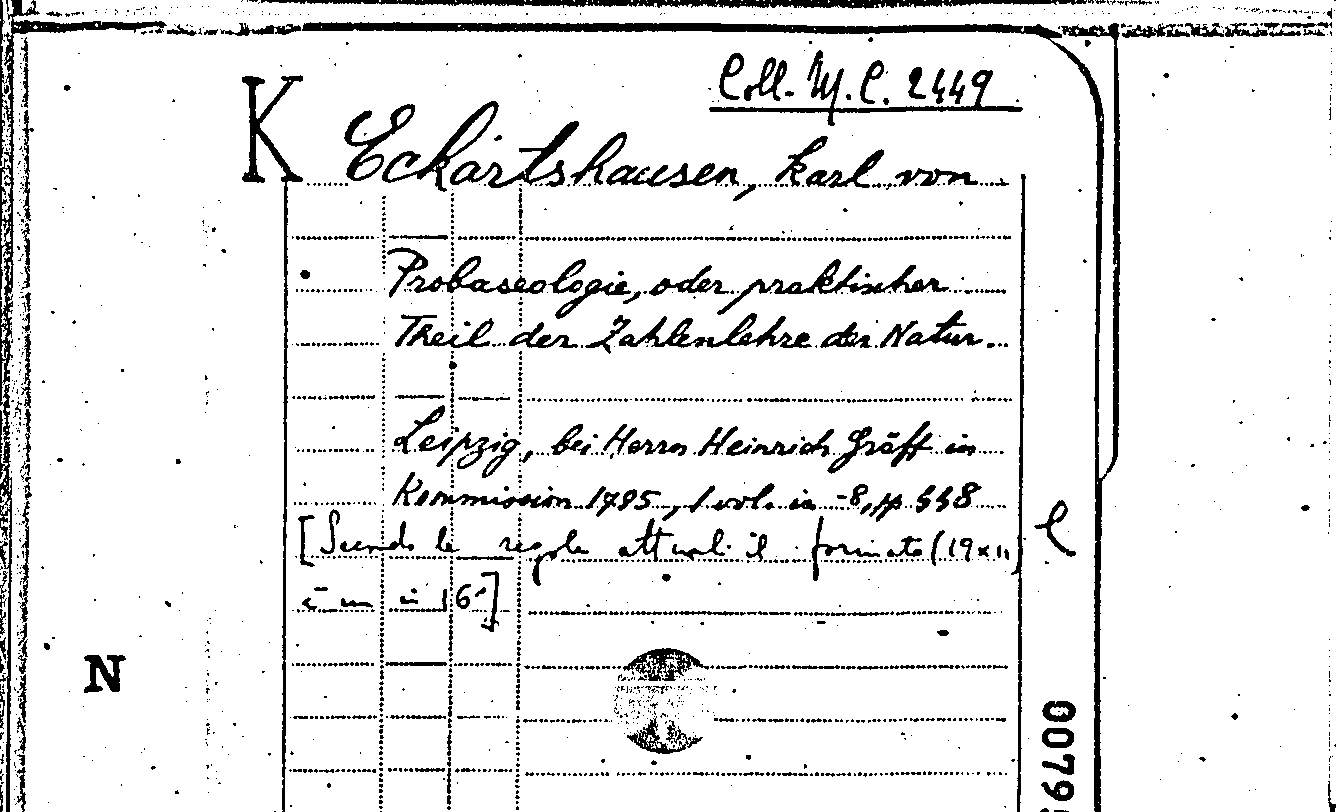 Coll. M.C. 2449
K Eckartshausen, Karl von
Probaseologie, oder praktischer
Theil der Zahlenlehre der Natur.
Leipzig, bei Herrn Heinrich Gräff in
Kommission 1795, 1 vol. in -8, pp 558
[Secondo le regole attuali il formato (19x11)
è un in 16°]
l
N
0079